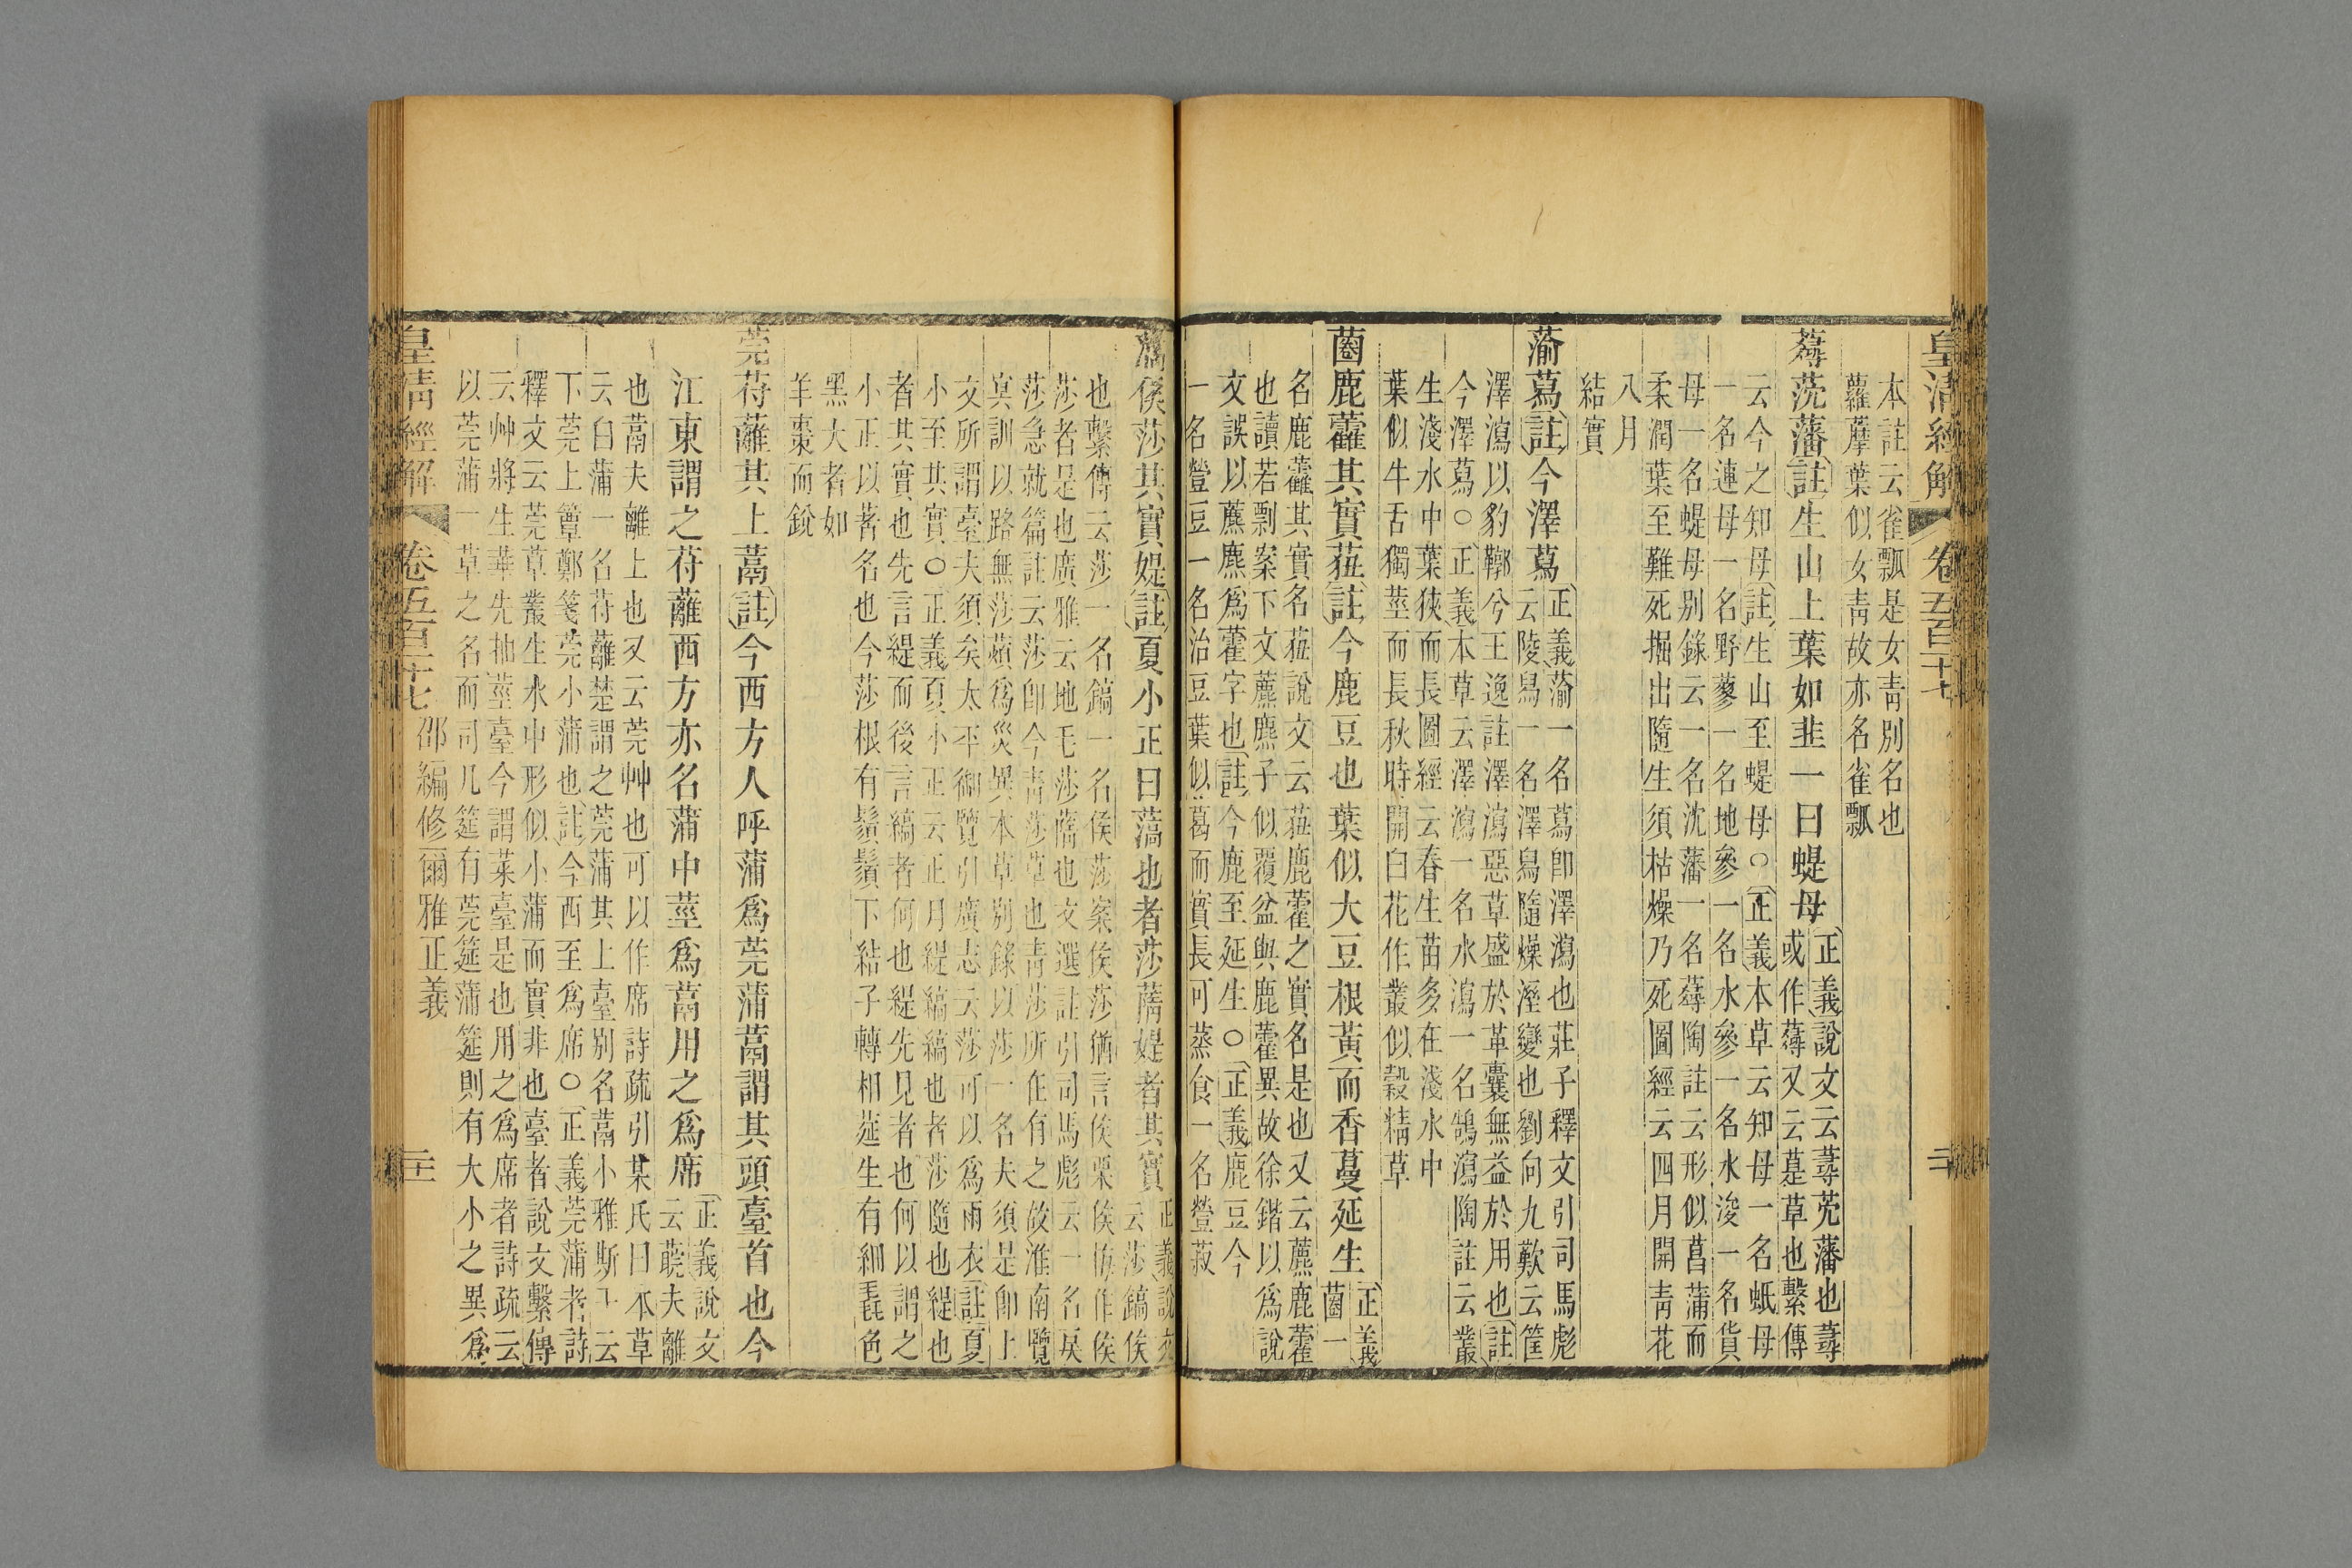 皇清經解 卷五百十七
本註云雀瓢是女青別名也
蘿藦葉似女青故亦名雀瓢
蕁莐藩註生山上葉如韭一曰蝭母正義說文云蕁莐藩也蕁
或作薚又云莐草也繫傳
云今之知母註生山至蝭母○正義本草云知母一名蚳母
一名連母一名野蓼一名地參一名水參一名水浚一名貨
母一名蝭母别錄云一名沈藩一名薚陶註云形似菖蒲而
柔潤葉至難死掘出隨生須枯燥乃死圖經云四月開青花
八月
結實
蕍蕮註今澤蕮正義蕍一名蕮卽澤瀉也莊子釋文引司馬彪
云陵舄一名澤舄隨燥溼變也劉向九歎云筐
澤瀉以豹鞹兮王逸註澤瀉惡草盛於革囊無益於用也註
今澤蕮○正義本草云澤瀉一名水瀉一名鵠瀉陶註云叢
生淺水中葉狹而長圖經云春生苗多在淺水中
葉似牛舌獨莖而長秋時開白花作叢似穀精草
蔨鹿藿其實莥註今鹿豆也葉似大豆根黃而香蔓延生正義
蔨一
名鹿藿其實名莥說文云莥鹿藿之實名是也又云藨鹿藿
也讀若剽案下文藨麃子似覆盆與鹿藿異故徐鍇以爲說
文誤以藨麃爲藿字也註今鹿至延生○正義鹿豆今
一名䝁豆一名治豆葉似葛而實長可蒸食一名䝁菽
薃侯莎其實媞註夏小正曰薃也者莎蓆媞者其實正義說文
云莎鎬侯
也繫傳云莎一名鎬一名侯莎案侯莎猶言侯栗侯梅作侯
莎者是也廣雅云地毛莎蓆也文選註引司馬彪云一名矦
莎急就篇註云莎卽今青莎草也青莎所在有之故淮南覽
冥訓以路無莎薠爲災異本草别錄以莎一名夫須是卽上
文所謂臺夫須矣太平御覽引廣志云莎可以爲雨衣註夏
小至其實○正義夏小正云正月緹縞縞也者莎隨也緹也
者其實也先言緹而後言縞者何也緹先見者也何以謂之
小正以著名也今莎根有鬚鬚下結子轉相莚生有細毛色
黑大者如
羊棗而銳
莞苻蘺其上蒚註今西方人呼蒲爲莞蒲蒚謂其頭臺首也今
江東謂之苻蘺西方亦名蒲中莖爲蒚用之爲席正義說文
云䔳夫離
也蒚夫離上也又云莞艸也可以作席詩疏引某氏曰本草
云白蒲一名苻蘺楚謂之莞蒲其上臺别名蒚小雅斯干云
下莞上簟鄭箋莞小蒲也註今西至爲席○正義莞蒲者詩
釋文云莞草叢生水中形似小蒲而實非也臺者說文繫傳
云艸將生華先抽莖臺今謂菜臺是也用之爲席者詩疏云
以莞蒲一草之名而司几筵有莞筵蒲筵則有大小之異爲
皇清經解 卷五百十七 邵編修爾雅正義